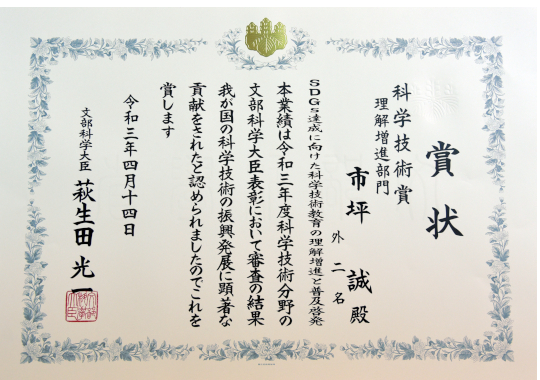 賞状
科学技術賞
理解増進部門
市坪 誠 殿
外二名
SDGs達成に向けた科学技術教育の理解増進と普及啓発
本業績は令和三年度科学技術分野の
文部科学大臣表彰において審査の結果
我が国の科学技術の振興発展に顕著な
貢献をされたと認められましたのでこれを
賞します
令和三年四月十四日
文部科学大臣 萩生田光一